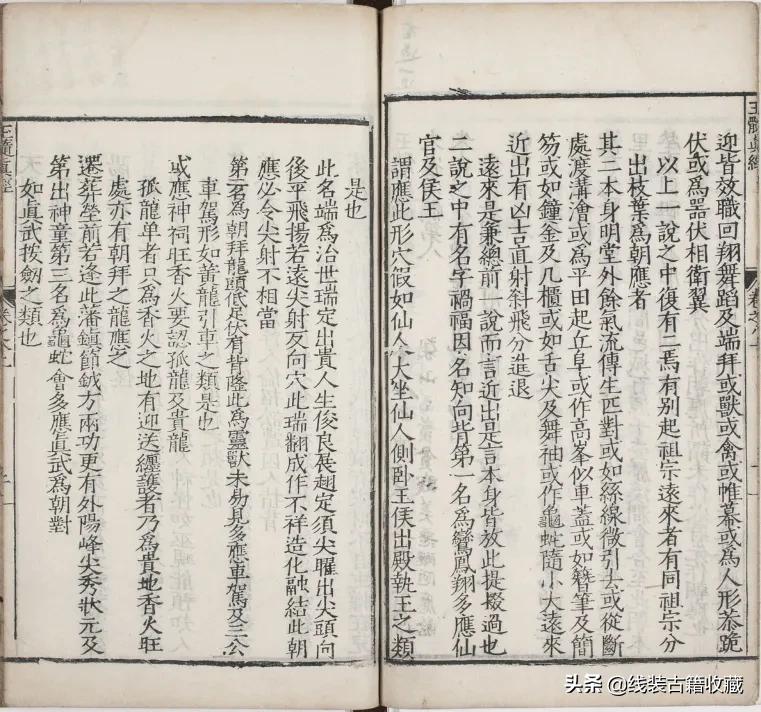 玉髓真經
迎皆效職回翔舞蹈及端拜或獸或禽或帷幕或爲人形恭跪
伏或爲器伏相衛翼
以上一說之中復有二焉有别起祖宗遠來者有同祖宗分
出枝葉爲朝應者
其二本身明堂外餘氣流傳生匹對或如絲線微引去或從斷
處渡溝澮或爲平田起丘阜或作高峯似車蓋或如簪筆及簡
笏或如鐘釜及几櫃或如舌尖及舞袖或作龜蛇隨小大遠來
近出有凶吉直射斜飛分進退
遠來是兼總前一說而言近出是言本身皆放此提掇過也
二說之中有名字禍福因名知向背第一名爲鸞鳳翔多應仙
官及侯王
謂應此形穴假如仙人大坐仙人側卧王侯出殿執王之類
是也
此名端爲治世瑞定出貴人生俊良展翅定須尖曜出尖頭向
後平飛揚若遠尖射反向穴此瑞翻成作不祥造化融結此朝
應必令尖射不相當
第二名爲朝拜龍頭低足伏有背隆此爲靈獸未易見多應車駕及三公
車駕形如黄龍引車之類是也
或應神祠旺香火要認孤龍及貴龍
孤龍單者只爲香火之地有迎送纏護者乃爲貴地香火旺
處亦有朝拜之龍應之
遷葬塋前若逢此藩鎮節鉞方兩功更有外陽峰尖秀狀元及
第出神童第三名爲龜蛇會多應眞武爲朝對
如眞武按劍之類也
玉髓眞經
头条 @线装古籍收藏